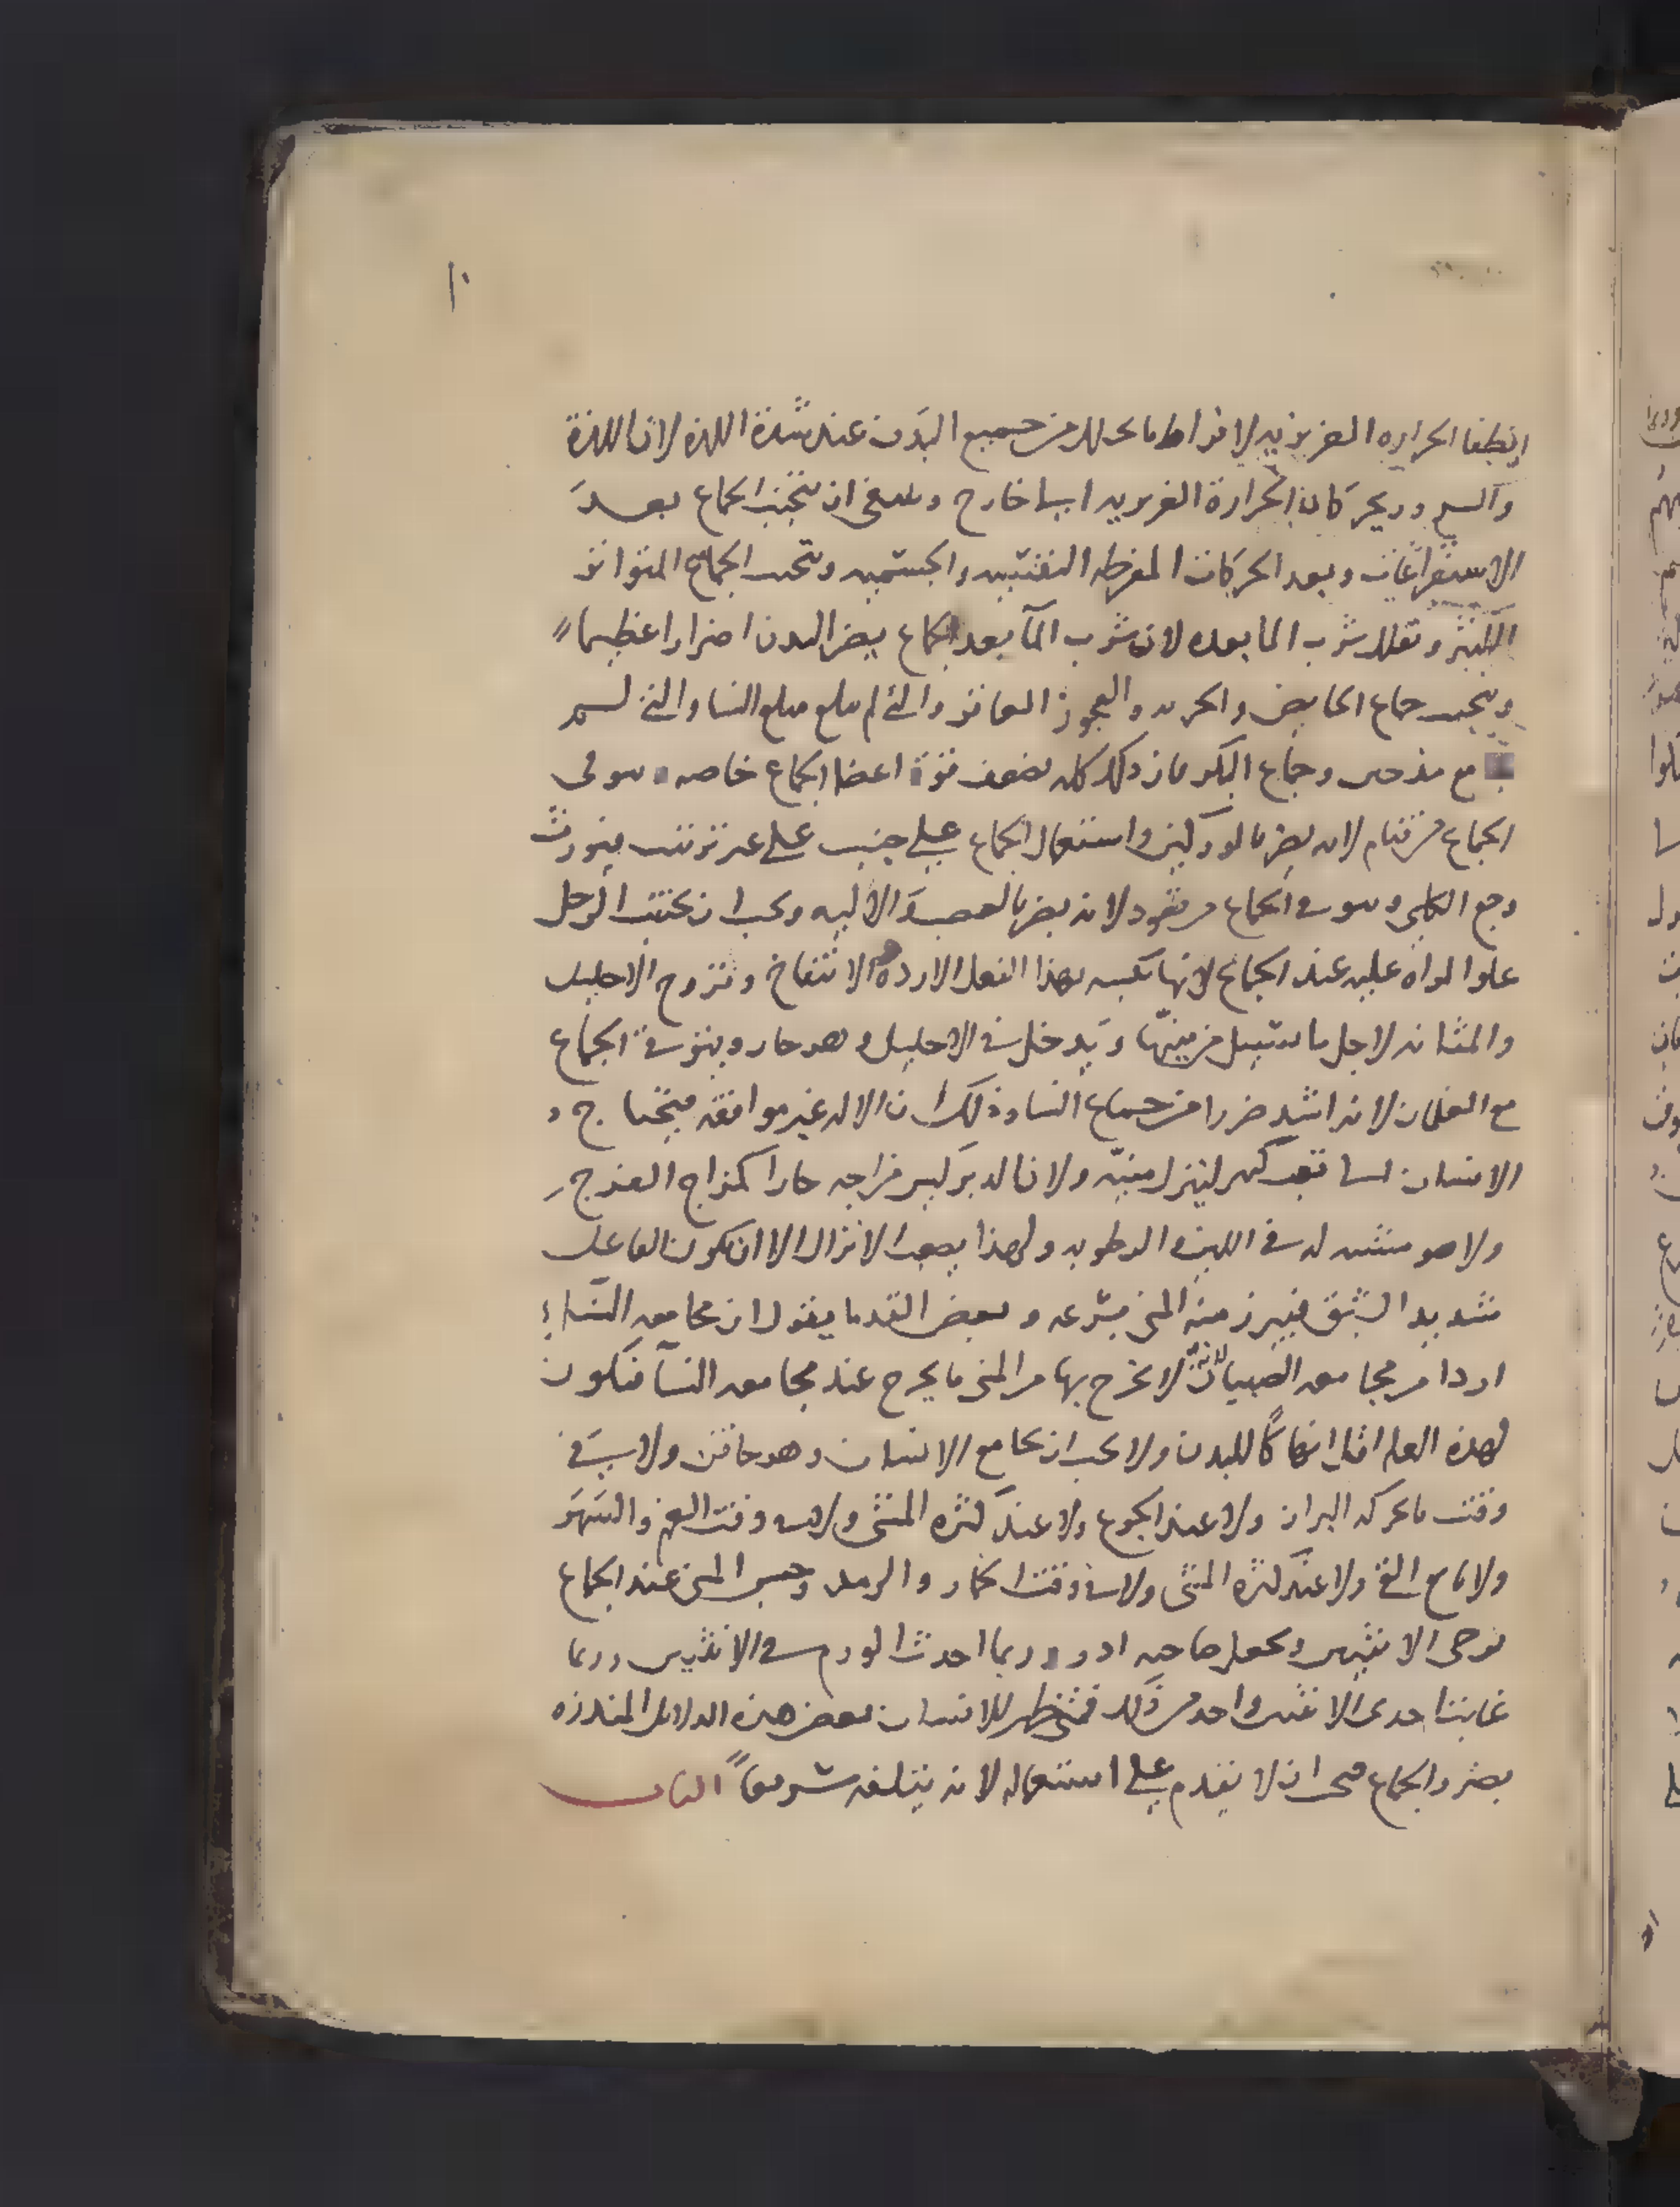 ١٠
انطفا الحراره الغريزيه لافراط ما تحلل من جميع البدن عند شدة اللذه لان اللذة
والسرور يحركان الحرارة الغريزيه الى خارج وينبغى ان يتجنب الجماع بعد
الاستفراغات وبعد الحركات المفرطه النفسيه والجسميه وتجنب الجماع المتواتر
الكثير وتقليل شرب الما بعده لان شرب المآ بعد الجماع يضر البدن اضرارا عظيما
ويتجنب جماع الحايض والحربه والعجوز العاقر والتى لم تبلغ مبلغ النسا والتى لم
تجامع مذ حين وجماع البكر فان ذلك كله يضعف قوة اعضا الجماع خاصه ويتوقى
الجماع من قيام لانه يضر بالوركين واستعمال الجماع على جنب على غير ترتيب فيورث
وجع الكلى ويتوقى الجماع من قعود لانه يضر بالعصب والاليه ويجب ان يجتنب الرجل
علو المراه عليه عند الجماع لانها تكسبه بهذا الفعل الادره والانتفاخ وقروح الاحليل
والمثانه لاجل ما يسيل من منيّها ويدخل فى الاحليل وهو حار ويتوقى الجماع
مع الغلمان لانه اشد ضررا من جماع النسا وذلك ان الاله غير موافقه فيحتاج
الانسان الى تعب كثير لينزل منيّه ولان الدبر ليس مزاجه حارا كمزاج الفرج
ولا هو مشبه له فى اللين والرطوبه ولهذا يصعب الانزال الا ان يكون الفاعل
شديد الشبق فيبرز منه المنى بسرعه وبعض القدما يقول ان مجامعه النساء
اردا من مجامعه الصبيان لانه لا يخرج بها من المنى ما يخرج عند مجامعه النسآ فتكون
لهذه العله اقل انهاكًا للبدن ولا يجب ان يجامع الانسان وهو حاقن ولا فى
وقت ما يحركه البراز ولا عند الجوع ولا عند كثره المشى ولا فى وقت الغم والسهر
ولا مع القى ولا عند كثره المشى ولا فى وقت الخمار والرمد وحبس المنى عند الجماع
يوذى الانثيين ويجعل صاحبه ادر وربما احدث الورم فى الانثيين وربما
غابت احدى الانثيين واحد من ذلك فمتى ظهر للانسان بعض هذه الدلايل المنذره
بضرر الجماع فيجب ان لا يقدم على استعماله لانه يتلفه سريعاً الباب